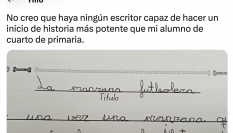 No creo que haya ningún escritor capaz de hacer un
inicio de historia más potente que mi alumno de
cuarto de primaria.
La manzana futbolera
Título
una vez una manzana q